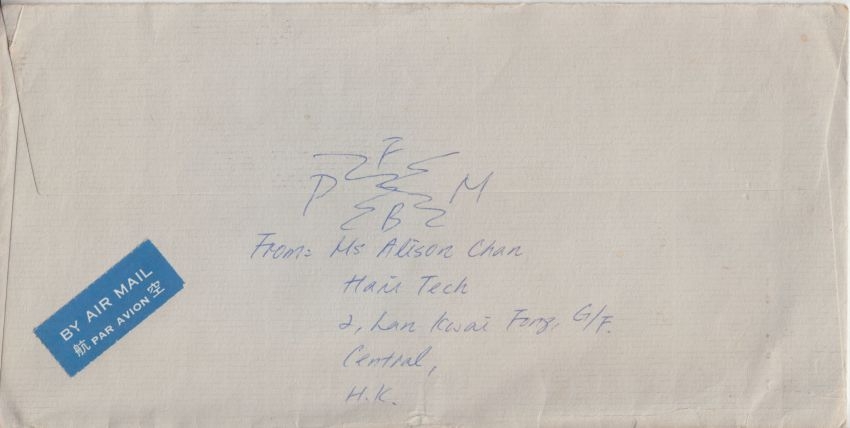 F
P M
B
From: Ms Alison Chan
Hair Tech
2, Lan Kwai Fong, G/F.
Central,
H.K.
BY AIR MAIL
航 PAR AVION 空